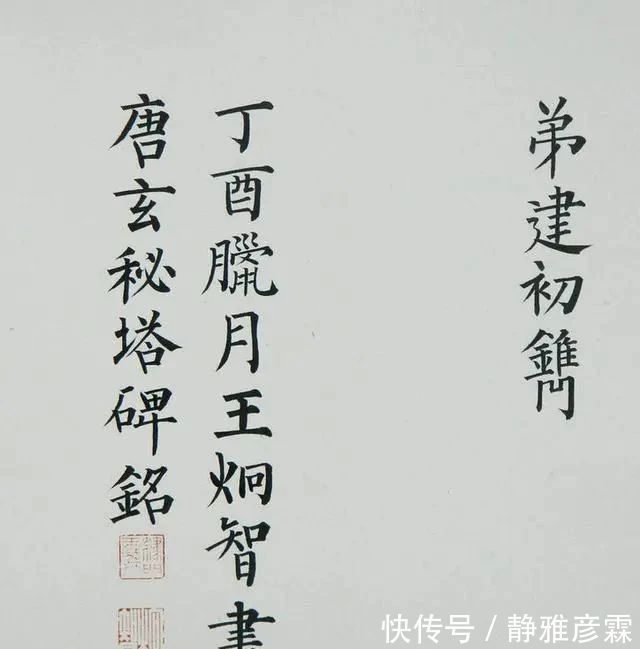 弟建初鐫
丁酉臘月王炯智書
唐玄秘塔碑銘
快传号／静雅彦霖